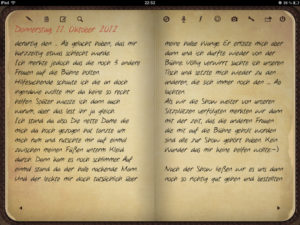 iPad
22:52
Donnerstag 11. Oktober 2012
derartig den .. Ab gelacht haben, das mir
kurzzeitig davon schlecht wurde
Ich merkte jedoch das die noch 3 andere
Frauen auf die Bühne holten
Hilfesuchende schaute ich die an doch
irgendwie wollte mir da keine so recht
helfen Später wusste ich dann auch
warum, aber das lest ihr ja gleich
Ich stand da also Die nette Dame die
mich da hoch gezogen hat tanzte um
mich rum und rutschte mir auf einmal
zwischen meinen Füßen unterm Kleid
durch Dann kam es noch schlimmer Auf
einmal stand da der halb nackende Mann
Und der leckte mir doch tatsächlich über
meine halbe Wange Er erlöste mich aber
dann und ich durfte wieder von der
Bühne Völlig verwirrt suchte ich unseren
Tisch und setzte mich wieder zu den
anderen, die sich immer noch den .. Ab
lachten
Als wir die Show weiter von unseren
Sitzplätzen verfolgten merkten wir dann
mit der Zeit, das die anderen Frauen
die mit auf die Bühne geholt wurden
sind alle zur Show gehört haben Kein
Wunder das mir keine helfen wollte:-)
Nach der Show ließen wir es uns dann
noch so richtig gut gehen und bestellten